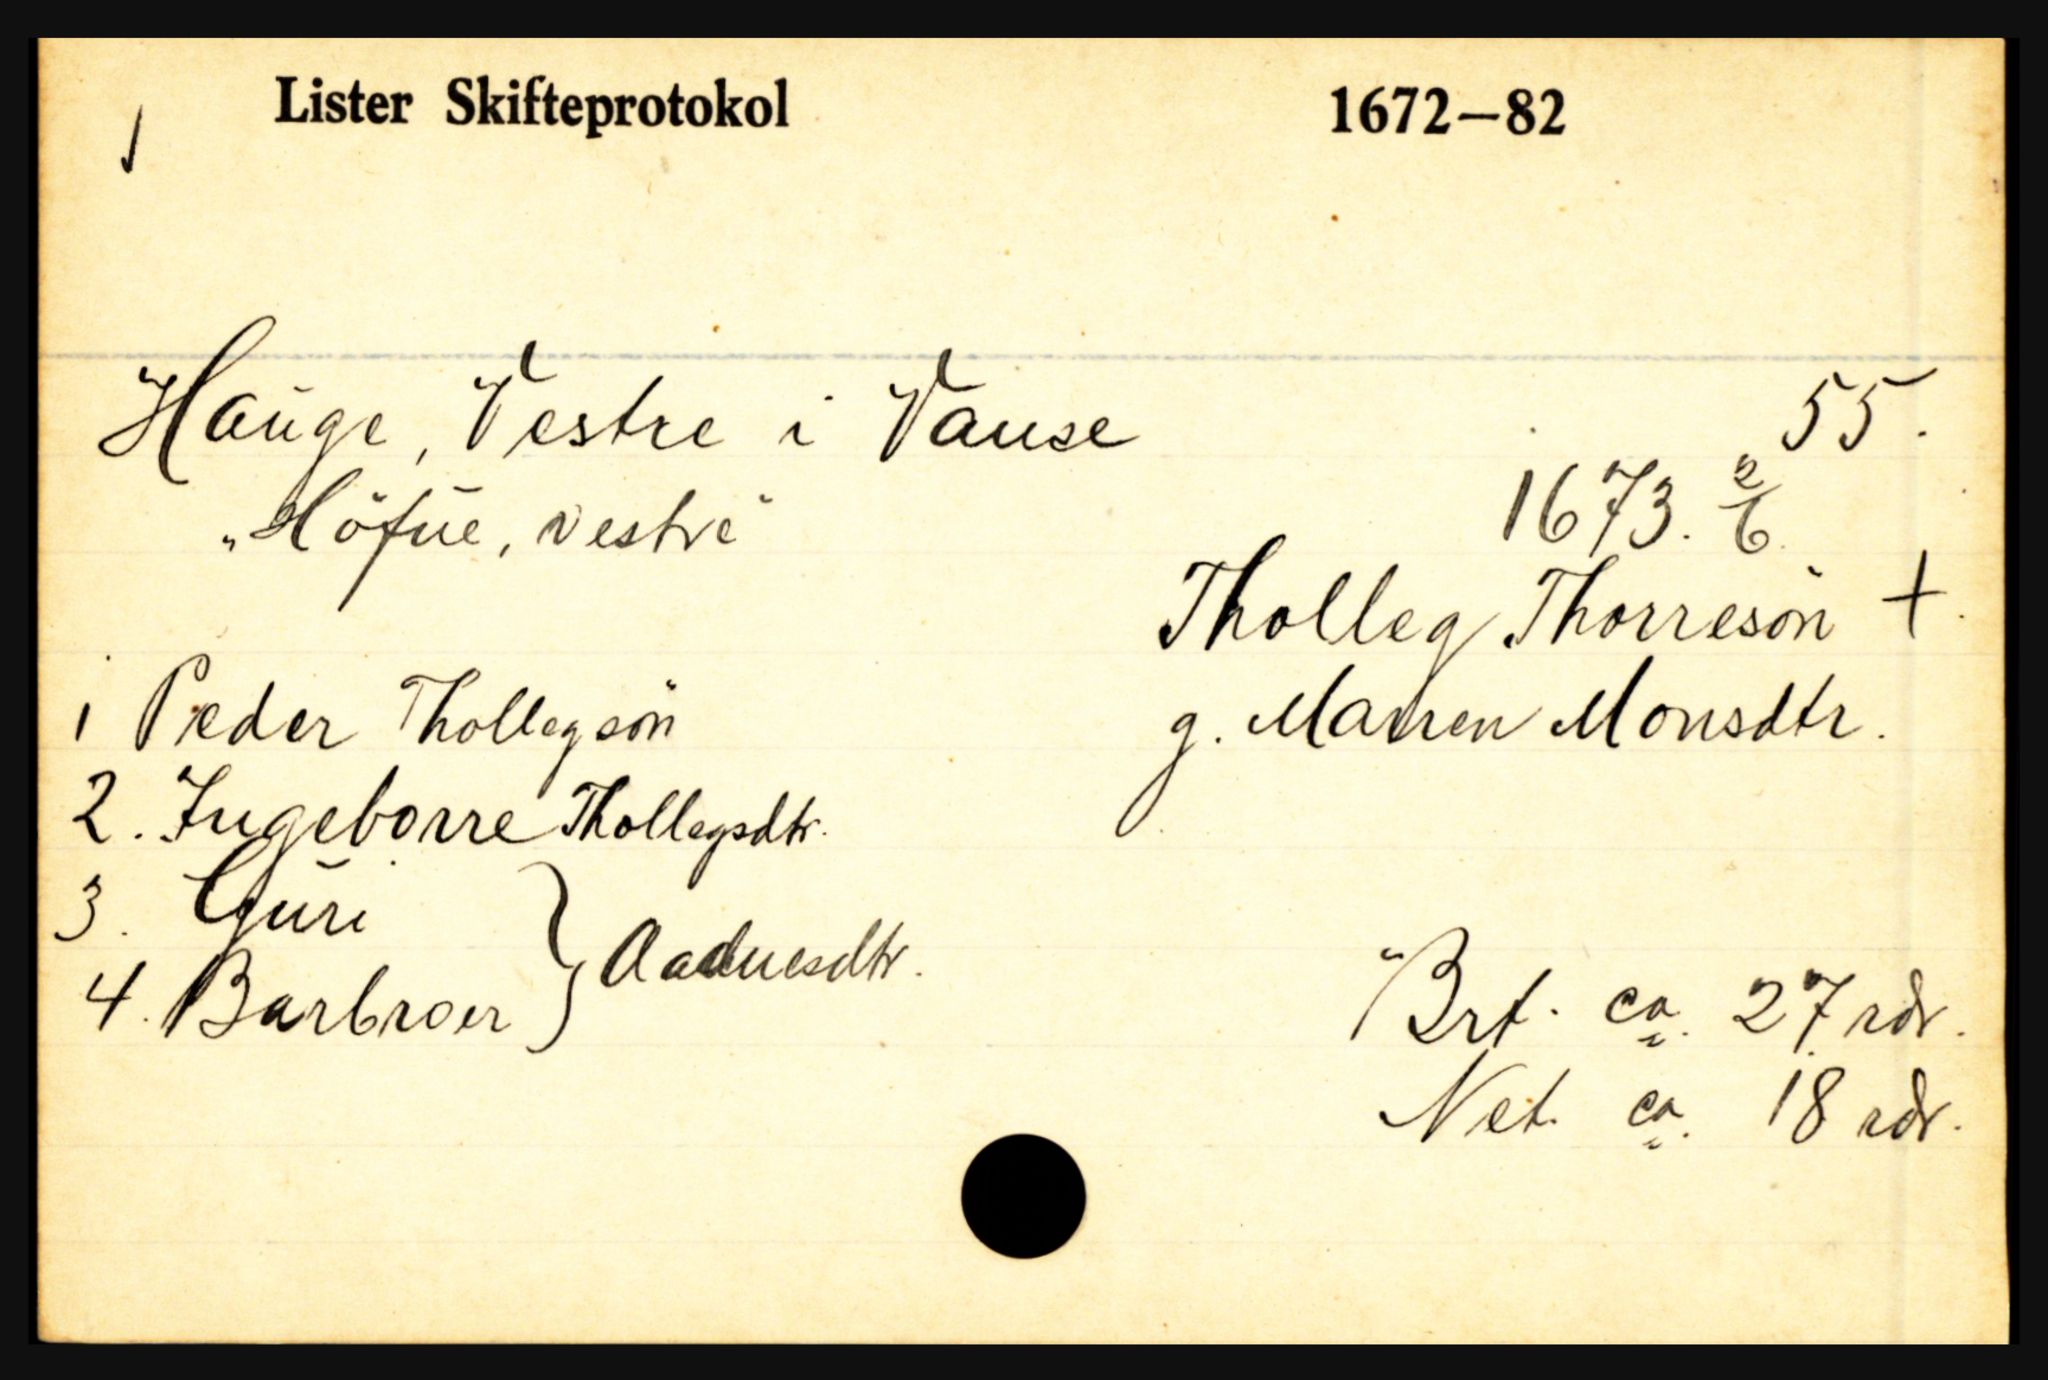 Lister Skifteprotokol 1672—82
Hauge, Vestre i Vanse 55.
"Höfue, vestre" 1673. 2/6.
Tholleg Thorresön +.
1 Peder Thollegsön g. Marren Monsdtr.
2. Ingeborre Thollegsdtr.
3. Guri } Aaduesdtr.
4. Barbroer
Brt. ca. 27 rdr.
Net. ca. 18 rdr.